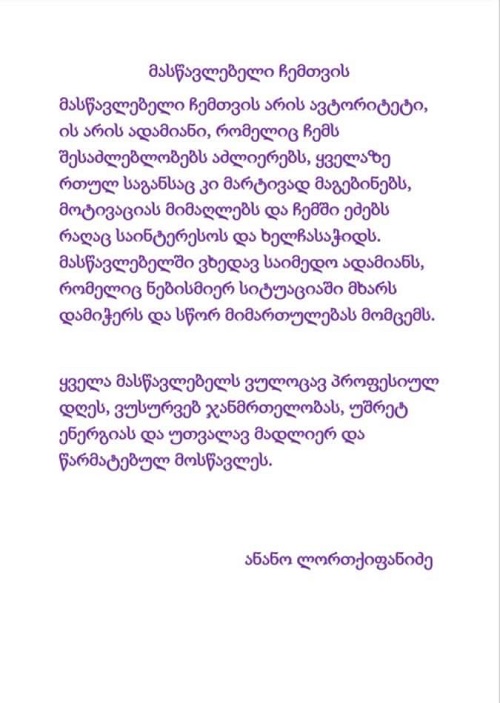 მასწავლებელი ჩემთვის
მასწავლებელი ჩემთვის არის ავტორიტეტი,
ის არის ადამიანი, რომელიც ჩემს
შესაძლებლობებს აძლიერებს, ყველაზე
რთულ საგანსაც კი მარტივად მაგებინებს,
მოტივაციას მიმაღლებს და ჩემში ეძებს
რაღაც საინტერესოს და ხელჩასაჭიდს.
მასწავლებელში ვხედავ საიმედო ადამიანს,
რომელიც ნებისმიერ სიტუაციაში მხარს
დამიჭერს და სწორ მიმართულებას მომცემს.
ყველა მასწავლებელს ვულოცავ პროფესიულ
დღეს, ვუსურვებ ჯანმრთელობას, უშრეტ
ენერგიას და უთვალავ მადლიერ და
წარმატებულ მოსწავლეს.
ანანო ლორთქიფანიძე